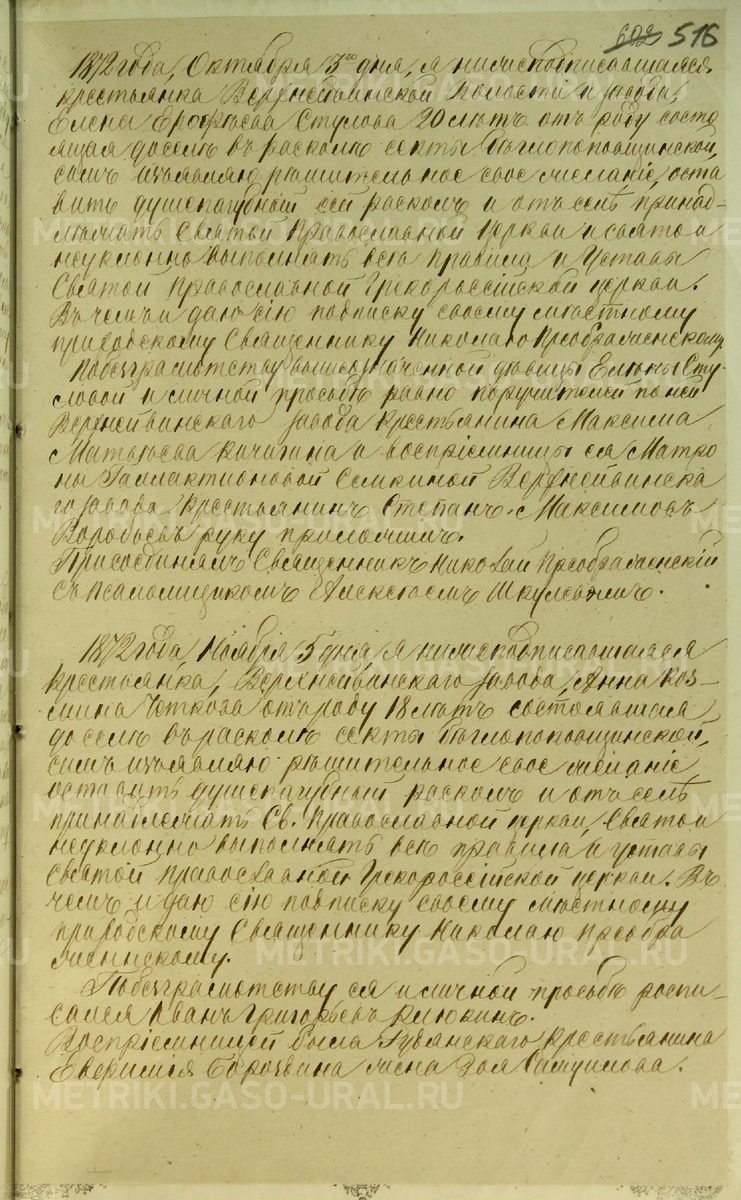 602 516
1872 года, Октября 3го дня, я нижеподписавшаяся
крестьянка Верхнейвинской Волости и завода,
Елена Ерофѣева Стулова 20 лѣтъ отъ роду состо
ящая доселѣ въ расколѣ секты бѣглопоповщинской,
симъ изъявляю рѣшительное свое желаніе, оста
вить душепагубный сей расколъ и отъ селѣ принад-
лежать Святой Православной Церкви и свято и
неуклонно выполнять всѣ правила и Уставы
Святой Православной Грекороссійской церкви.
Въ чемъ и даю сію подписку своему мѣстному
приходскому Священнику Николаю Преображенскому,
По безграмотству вышеозначенной дѣвицы Елены Сту
ловой и личной просьбѣ равно поручителей по ней
Верхнейвинскаго завода крестьянина Максима
Матвѣева и воспріемницы ея Матро
ны Галлактионовой Семкиной Верхнейвинска
го завода крестьянинъ Степанъ Максимовъ
Воробьевъ руку приложилъ.
Присоединялъ Священникъ Николай Преображенскій
съ Псаломщикомъ Алексѣемъ
1872 года, Ноября 5 дня я нижеподписавшаяся
крестьянка, Верхнейвинскаго завода, Анна Коз-
мина отъ роду 18 лѣтъ состоявшая
доселѣ въ расколѣ секты бѣглопоповщинской,
симъ изъявляю рѣшительное свое желаніе
оставить душепагубный расколъ и отъ селѣ
принадлежать Св. Православной церкви, Свято и
неуклонно выполнять всѣ правила и уставы
Святой Православной Грекороссійской церкви. Въ
чемъ и даю сію подписку своему мѣстному
приходскому Священнику Николаю Преобра
женскому.
По безграмотству ея и личной просьбѣ роспи-
сался Иванъ Григорьевъ Клюкинъ.
Воспріемницей была крестьянина
жена Самуилова.
METRIKI.GASO-URAL.RU